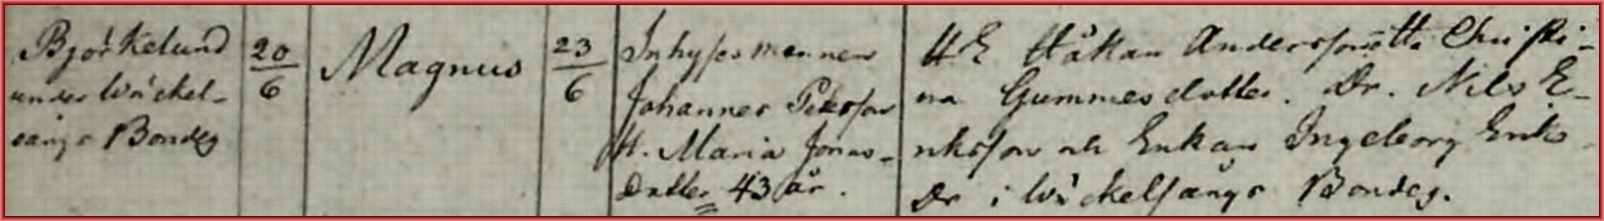 Björkelund
under Wäckel-
sångs Bondeg
20/6
Magnus
23/6
Inhysesmannen
Johannes Peterson
H. Maria Jonas-
Dotter 43 år.
HE Håkan Andersson
Christi-
na Gummesdotter. Dr. Nils E-
rikson och Enkan Ingeborg Eriks
Dr i Wäckelsångs Bondeg.